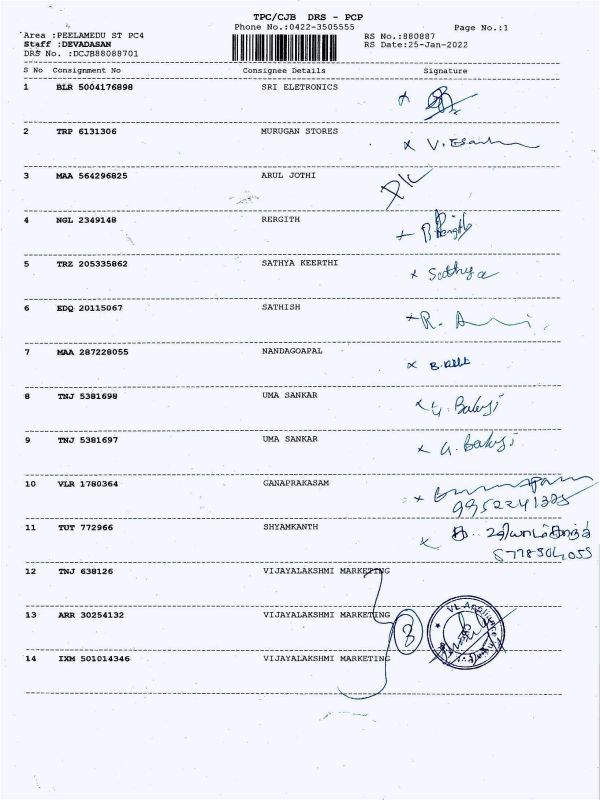 TPC/CJB DRS - PCP
Phone No.:0422-3505555 Page No.:1
Area :PEELAMEDU ST PC4 RS No.:880887
Staff :DEVADASAN RS Date:25-Jan-2022
DRS No. :DCJB88088701
S No Consignment No Consignee Details Signature
1 BLR 5004176898 SRI ELETRONICS x
2 TRP 6131306 MURUGAN STORES x V.
3 MAA 564296825 ARUL JOTHI
4 NGL 2349148 RERGITH
5 TRZ 205335862 SATHYA KEERTHI x Sathya
6 EDQ 20115067 SATHISH R.
7 MAA 287228055 NANDAGOAPAL x B.
8 TNJ 5381698 UMA SANKAR x G. Balaji
9 TNJ 5381697 UMA SANKAR x G. Balaji
10 VLR 1780364 GANAPRAKASAM x
11 TUT 772966 SHYAMKANTH x
12 TNJ 638126 VIJAYALAKSHMI MARKETING
13 ARR 30254132 VIJAYALAKSHMI MARKETING 3
14 IXM 501014346 VIJAYALAKSHMI MARKETING